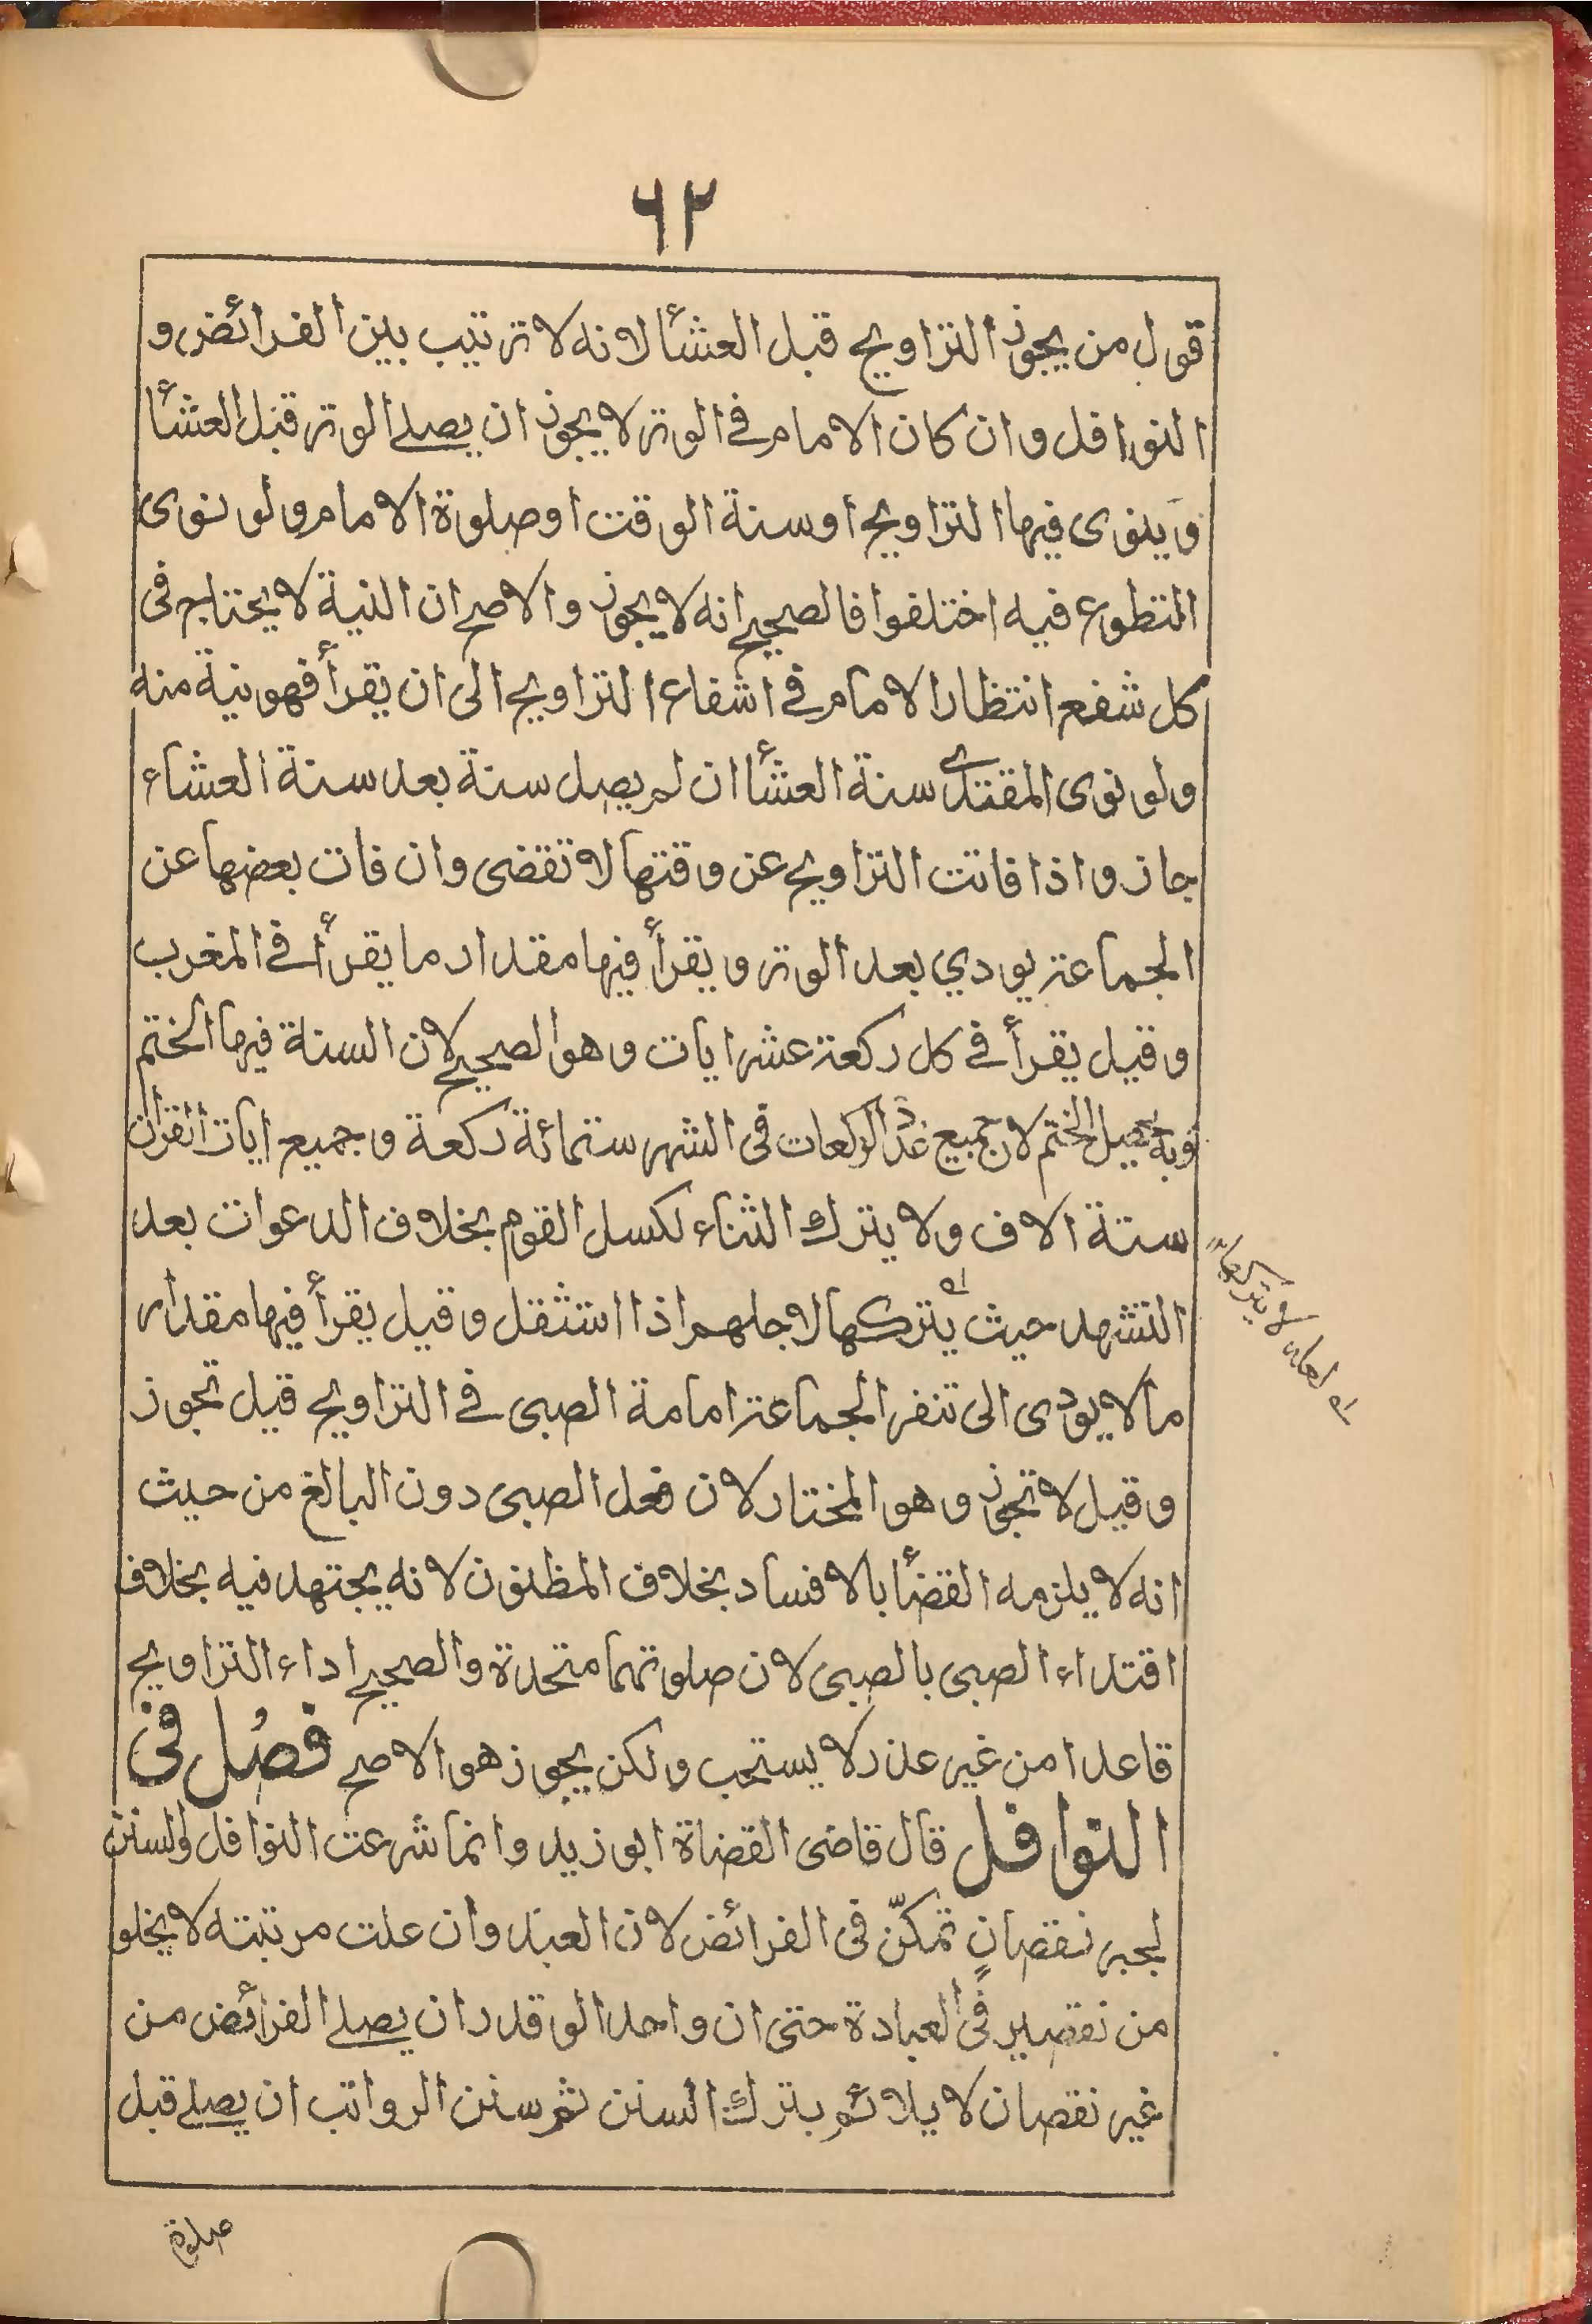 ٦٢
قول من يجوز التراويح قبل العشأ لانه لا ترتيب بين الفرائض و
النوافل وان كان الامام في الوتر لا يجوز ان يصلے الوتر قبل العشأ
وينوى فيها التراويح اوسنة الوقت اوصلوة الامام ولو نوى
التطوع فيه اختلفوا فالصحيح انه لا يجوز والاصح ان النية لا يحتاج فى
كل شفع انتظارا لامام في اشفاع التراويح الى ان يقرأ فهونية منه
ولو نوى المقتدى سنة العشأ ان لم يصل سنة بعد سنة العشاء
جاز واذا فاتت التراويح عن وقتها لا تقضى وان فات بعضها عن
الجماعة يودي بعد الوتر ويقرأ فيها مقدار ما يقرأ في المغرب
وقيل يقرأ في كل ركعة عشر ايات وهو الصحيح لان السنة فيها الختم
وبه يحصيل الختم لان جميع عدد الركعات فى الشهر ستمائة ركعة وجميع ايات القران
ستة الاف ولا يترك الثناء لكسل القوم بخلاف الدعوات بعد
التشهد حيث يتركها لاجلهم اذا استثقل وقيل يقرأ فيها مقدار
مالا يودى الى تنفر الجماعة امامة الصبى في التراويح قيل تجوز
وقيل لا تجوز وهو المختار لان فعل الصبى دون البالغ من حيث
انه لا يلزمه القضأ بالافساد بخلاف المظنون لانه يجتهد فيه بخلاف
اقتداء الصبى بالصبى لان صلوتهما متحدة والصحيح اداء التراويح
قاعدا من غير عذر لا يستحب ولكن يجوز هو الاصح فصل فى
النوافل قال قاضى القضاة ابو زيد وانما شرعت النوافل والسنن
لجبر نقصانٍ تمكّن فى الفرائض لان العبد وان علت مرتبته لا يخلو
من نقصير فى العبادة حتى ان واحد الو قدر ان يصلے الفرائض من
غير نقصان لا يلائم بترك السنن ثم سنن الرواتب ان يصلے قبل
صلوة